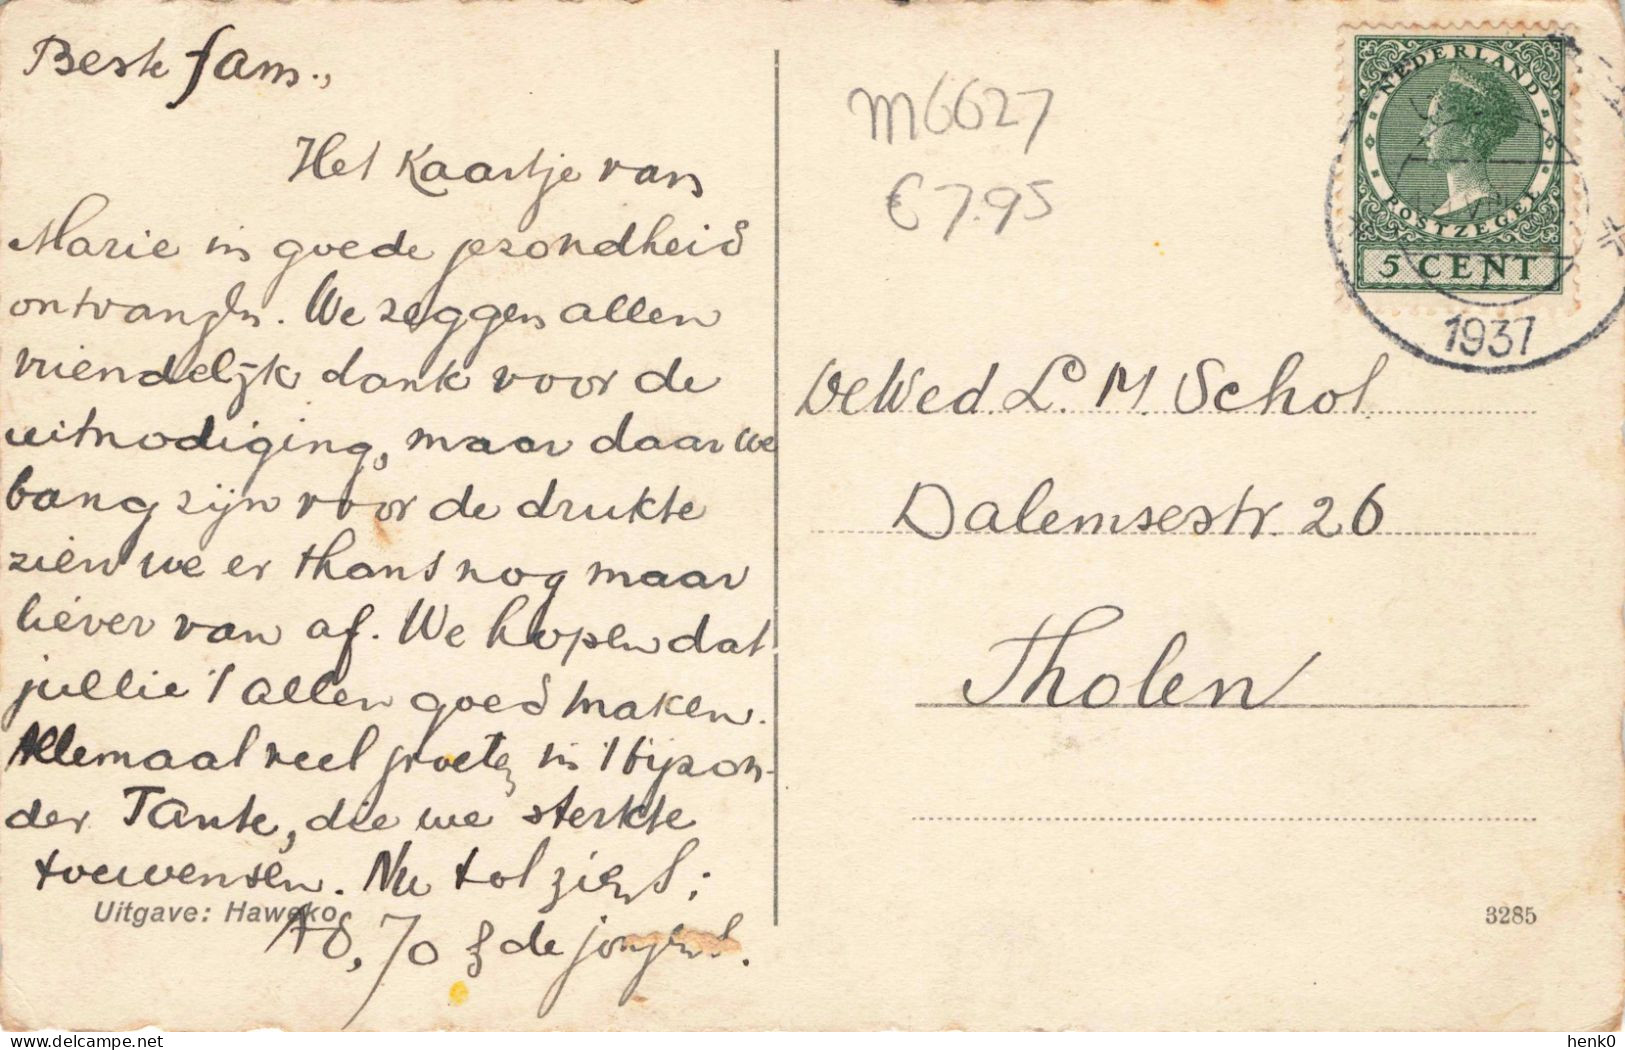 Beste fam.,
Het kaartje van
Marie in goede gezondheid
ontvangen. We zeggen allen
vriendelijk dank voor de
uitnodiging, maar daar we
bang zijn voor de drukte
zien we er thans nog maar
liever van af. We hopen dat
jullie 't allen goed maken.
Allemaal veel groeten in 't bijzon-
der Tante, die we sterkte
toewensen. Nu tot ziens;
Uitgave: Haweko
Jo & de jongens.
m6627
€7.95
NEDERLAND
POSTZEGEL
5 CENT
1937
De Wed. L. M. Schot
Dalemsestr. 26
Tholen
3285
delcampe.net
henk0